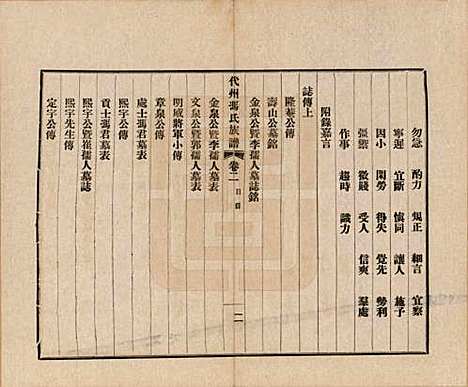 勿急 酌力 規正 細言 宜察
寧遲 宜斷 慎同 讓人 施予
因小 閑勞 得失 覺先 勢利
張鹽 微賤 受人 信爽 羣處
作事 趨時 識力
附錄嘉言
誌傳上
隆菴公傳
壽山公墓銘
金泉公暨李孺人墓誌銘
代州馮氏族譜 卷二 目錄 二
金泉公暨李孺人墓表
文泉公暨郭孺人墓表
明威將軍小傳
章泉公傳
處士馮君墓表
貢士馮君墓表
熙宇公傳
熙宇公暨崔孺人墓誌
熙宇先生傳
定宇公傳